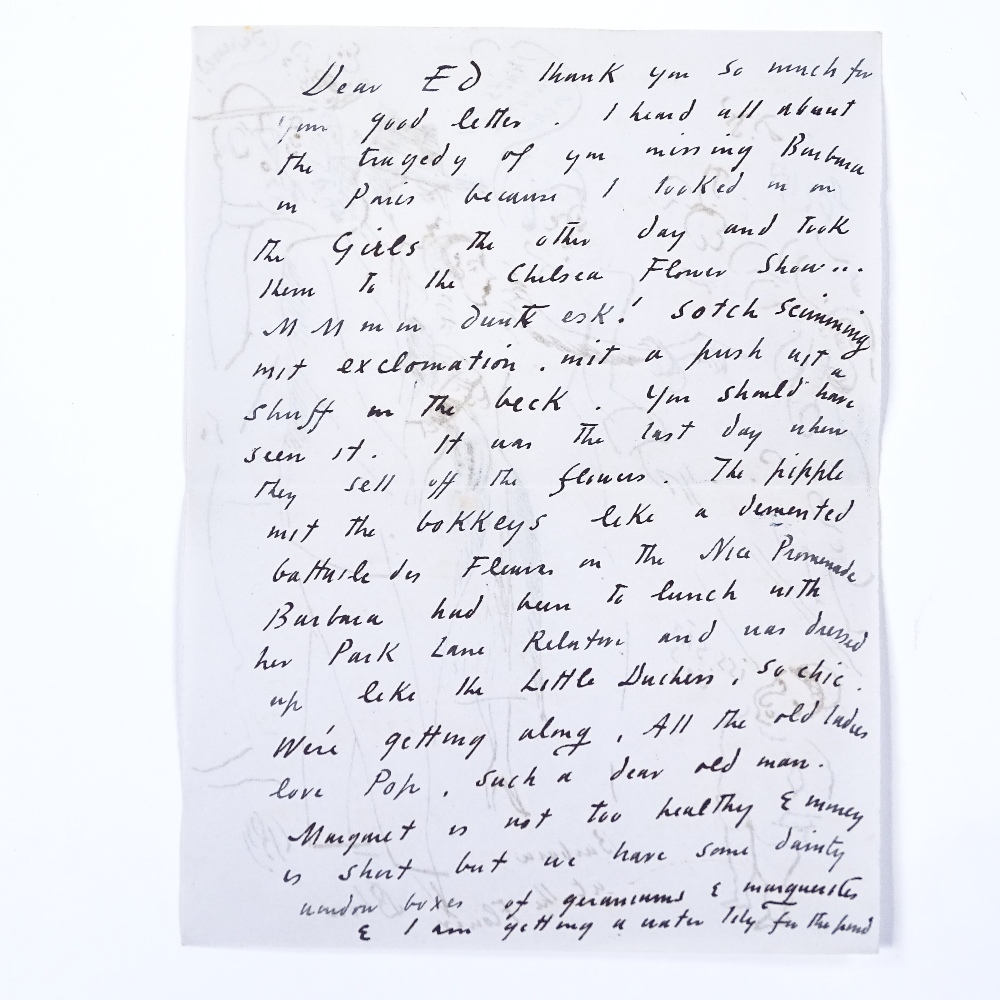 Dear Ed thank you so much for
your good letter. I heard all about
the tragedy of you missing Barbara
in Paris because I looked in on
the Girls the other day and took
them to the Chelsea Flower Show...
M M m m dunt esk! Sotch scimming
mit exclomation. mit a push mit a
shuff in the beck. You should have
seen it. It was the last day when
they sell off the flowers. The pipple
mit the bokkeys like a demented
battaile des Fleurs on the Nice Promenade
Barbara had been to lunch with
her Park Lane Relative and was dressed
up like the Little Duchess, so chic.
We're getting along. All the old ladies
love Pop, such a dear old man.
Margaret is not too healthy & money
is short but we have some dainty
window boxes of geraniums & marguerites
& I am getting a water lily for the pond